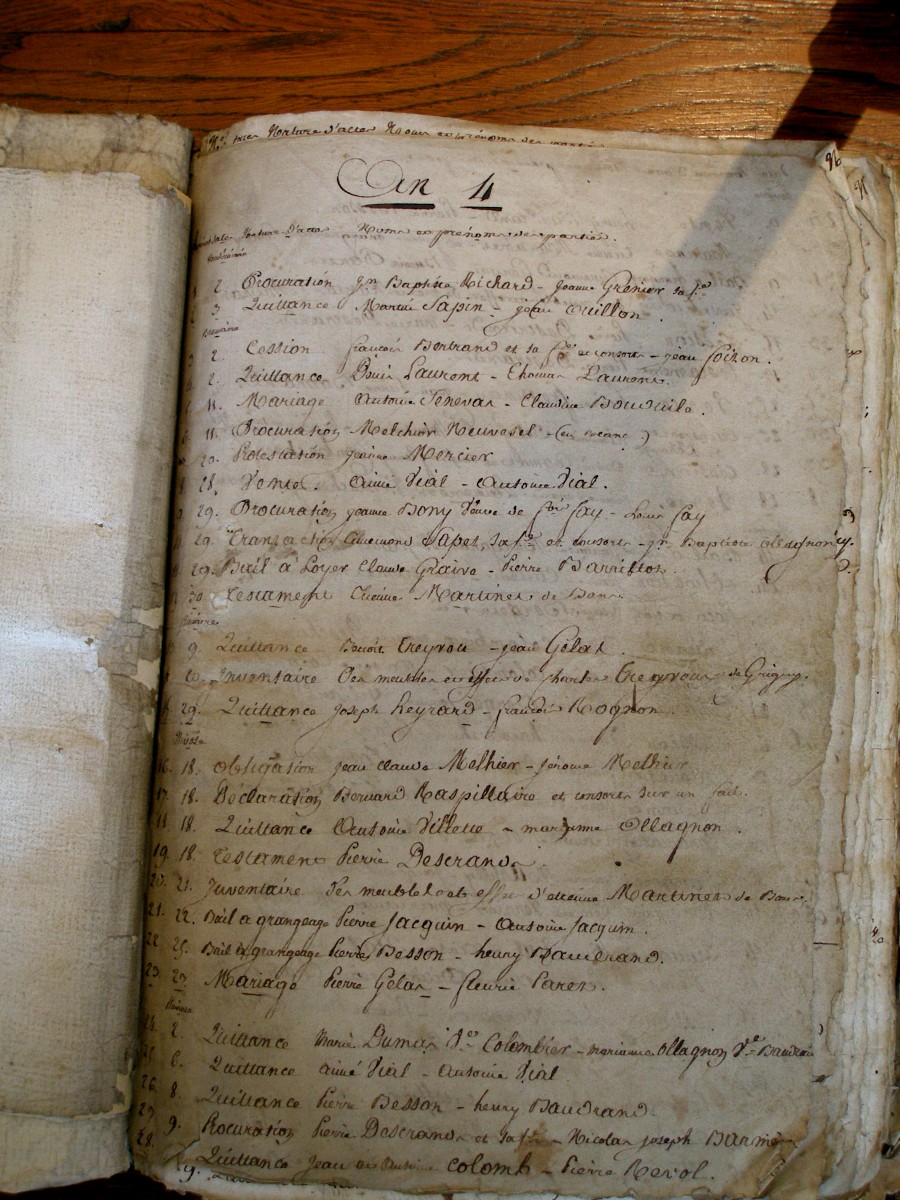 Nature d'actes Noms et prénoms des parties
96
An 4
Nature d'actes Noms et prénoms des parties.
Vendémiaire
2. Procuration Jn Baptiste Richard - Jeanne Grenier sa fe
3. Quittance Martin Sapin - jean Ouillon
Brumaire
2. Cession françois Bertrand et sa fe et consorts - jean foizon.
2. Quittance Louis Laurent - Thomas Laurent.
11. Mariage Antoine Tenevas - Claudine
11. Procuration Melchior Neuvesel - (en
20. Protestation jeanne Mercier
28. Vente. aimé Vial - Antoine Vial.
29. Procuration jeanne Bony Veuve de foix fay - Louis fay
29. Transaction Sapet, sa fe et consorts - jn Baptiste Ollagnon
29. Bail à Loyer Claude Graive - Pierre
30. Testament Etienne Martinet de Bans.
frimaire
9. Quittance Benoit Treyvou - jean Gelas.
10. Inventaire Des meubles et effets de charles Treyvoux de Grigny.
29. Quittance joseph Peyrard - françois Rognon.
Nivôse
16. 18. Obligation jean claude Melhier - jérome Melhier
17. 18. Déclaration Bernard Raspillaire et consorts sur un fait.
18. 18. Quittance Antoine Villette - marianne Ollagnon.
19. 18. Testament Pierre Descrands.
20. 21. Inventaire Des meubles et effets d'etienne Martinet de Bans.
21. 22. Bail a grangeage Pierre Jacquin - Antoine Jacquin.
22. 25. Bail a grangeage Pierre Besson - henry Baudrand.
23. 29. Mariage Pierre Gelas - fleurie Paret.
24. 2. Quittance Marie Dumas Ve Colombier - marianne Ollagnon Ve Baudrand
25. 6. Quittance aimé Vial - Antoine Vial
26. 8. Quittance Pierre Besson - henry Baudrand.
27. 9. Procuration Pierre Descrands et sa fe - Nicolas joseph
28. 9. Quittance Jean Colomb - Pierre Revol.